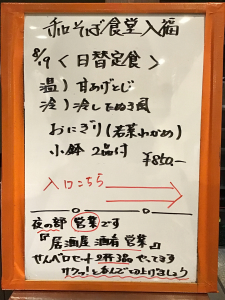 和そば食堂入福
8/9〈日替定食〉
温）甘あげとじ
冷）冷したぬき風
おにぎり（若菜わかめ）
小鉢 2品付
¥850-
入口こちら
夜の部 営業です
『居酒屋 酒肴 営業』
せんべロセット
やってます
サクッとのんで切上げましょう